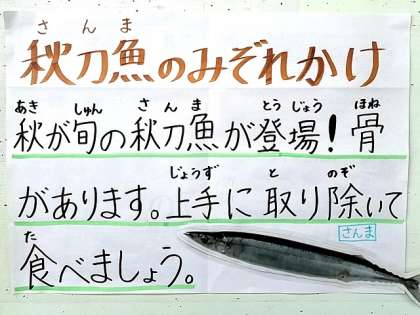 さんま
秋刀魚のみぞれかけ
あき しゅん さんま とうじょう ほね
秋が旬の秋刀魚が登場!骨
じょうず と のぞ
があります。上手に取り除いて
さんま
た
食べましょう。